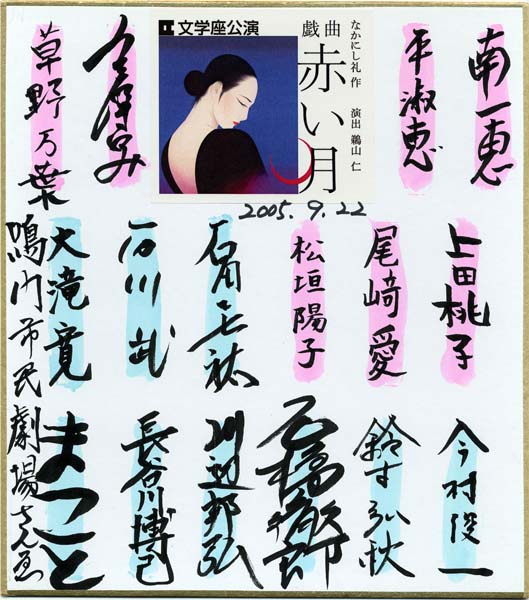 文学座公演
戯曲
赤い月
なかにし礼 作
演出 鵜山 仁
2005.9.22
南一恵
平淑恵
草野万葉
上田桃子
尾崎愛
松垣陽子
石川武
大滝寛
今村俊一
鈴木弘秋
石橋徹郎
川辺邦弘
長谷川博己
鳴門市民劇場さん江